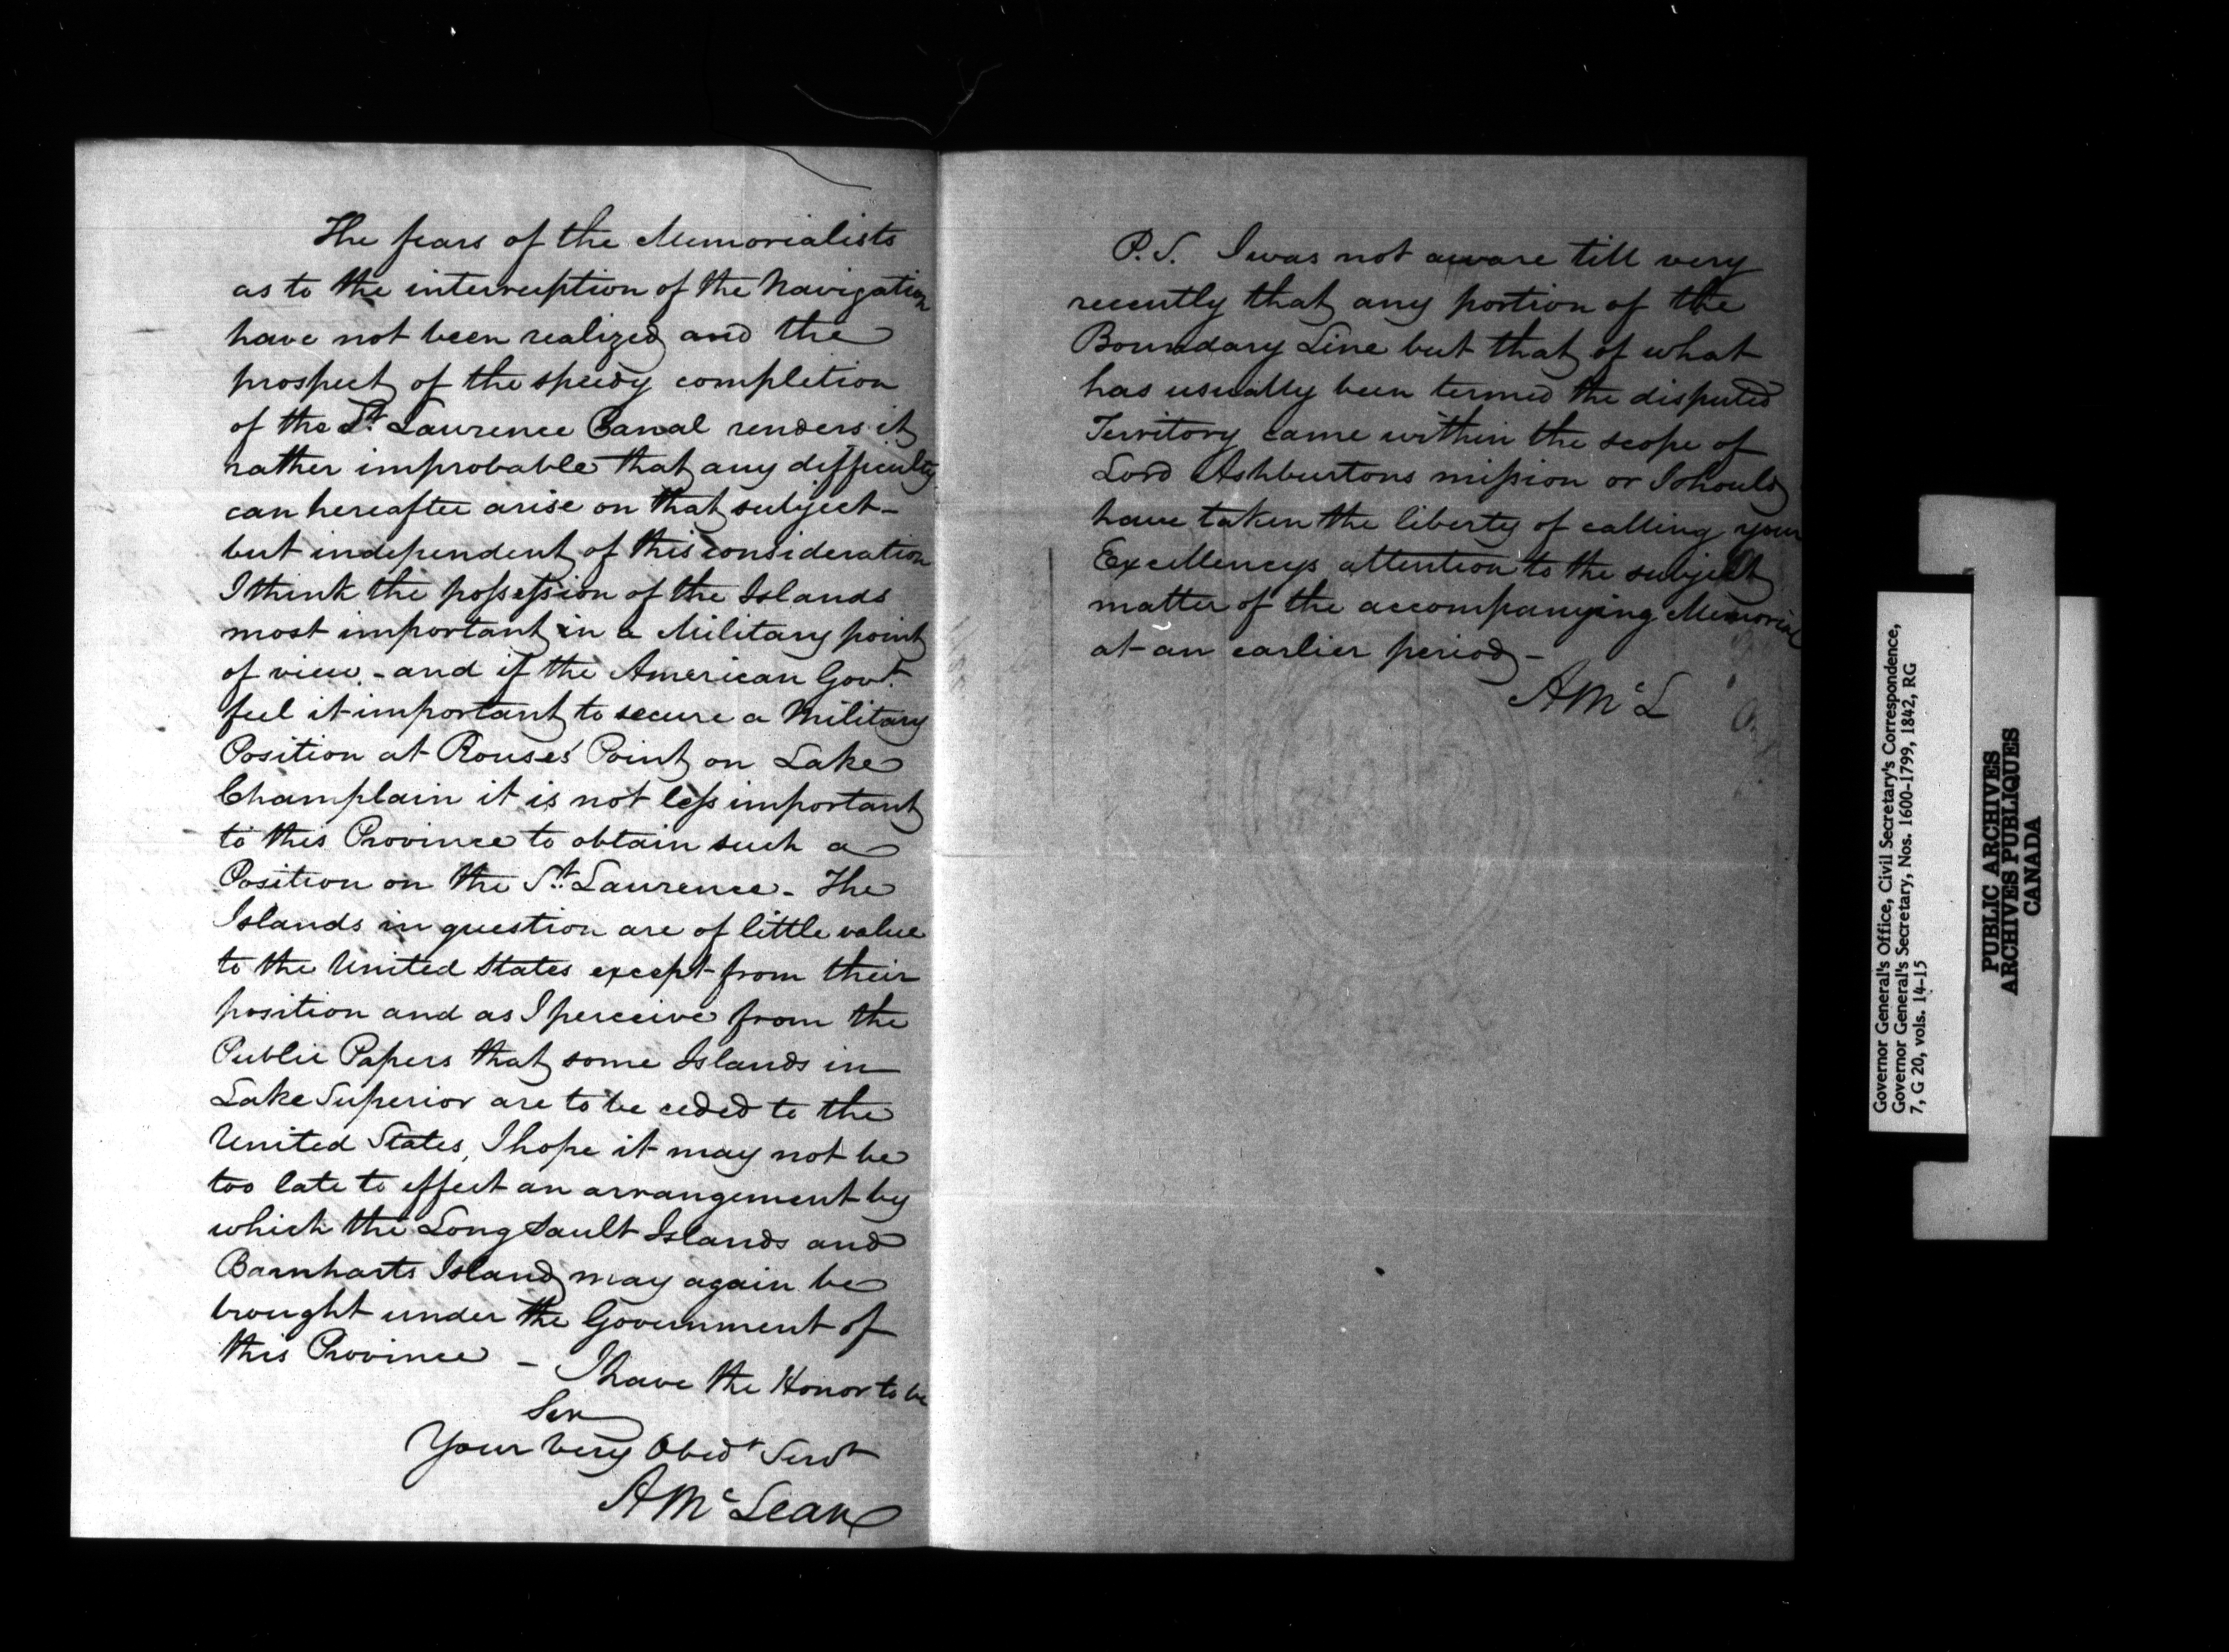 The fears of the Memorialists
as to the interruption of the Navigation
have not been realized and the
prospect of the speedy completion
of the St. Laurence Canal renders it
rather improbable that any difficulty
can hereafter arise on that subject -
but independent of this consideration
I think the possession of the Islands
most important in a Military point
of view - and if the American Govt.
feel it important to secure a Military
Position at Rouses Point on Lake
Champlain it is not less important
to this Province to obtain such a
Position on the St. Laurence - The
Islands in question are of little value
to the United States except from their
position and as I perceive from the
Public Papers that some Islands in
Lake Superior are to be ceded to the
United States, I hope it may not be
too late to effect an arrangement by
which the Long Sault Islands and
Barnharts Island may again be
brought under the Government of
this Province -
I have the Honor to be
Sir
Your very Obedt Servt
A McLean
P.S. I was not aware till very
recently that any portion of the
Boundary Line but that of what
has usually been termed the disputed
Territory came within the scope of
Lord Ashburtons mission or I should
have taken the liberty of calling your
Excellencys attention to the subject
matter of the accompanying Memorial
at an earlier period -
A McL
Governor General's Office, Civil Secretary's Correspondence,
Governor General's Secretary, Nos. 1600-1799, 1842, RG
7, G 20, vols. 14-15
PUBLIC ARCHIVES
ARCHIVES PUBLIQUES
CANADA